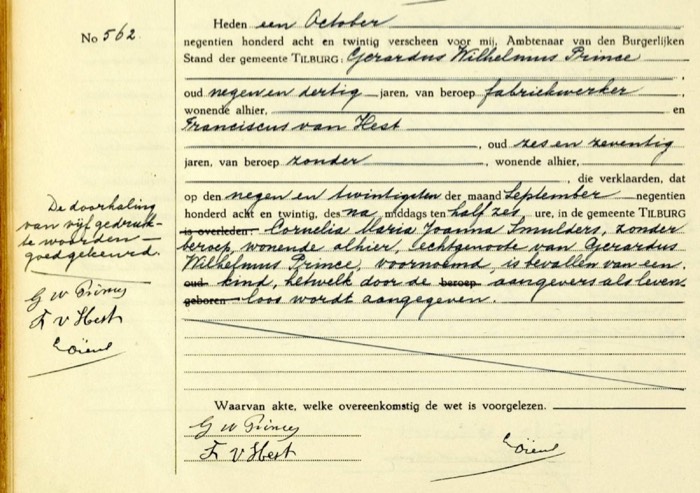 No 562.
Heden een October
negentien honderd acht en twintig verscheen voor mij, Ambtenaar van den Burgerlijken
Stand der gemeente TILBURG: Gerardus Wilhelmus Prince
oud negen en dertig jaren, van beroep fabriekwerker
wonende alhier, en
Franciscus van Hest
, oud zes en zeventig
jaren, van beroep zonder , wonende alhier,
, die verklaarden, dat
op den negen en twintigsten der maand September negentien
honderd acht en twintig, des na middags ten half zes ure, in de gemeente TILBURG
is overleden: Cornelia Maria Joanna Smulders, zonder
beroep, wonende alhier, echtgenoote van Gerardus
Wilhelmus Prince, voornoemd, is bevallen van een
oud kind, hetwelk door de beroep aangevers als leven-
geboren loos wordt aangegeven.
De doorhaling
van vijf gedruk-
te woorden
goedgekeurd.
G W Prince
F v Hest
Waarvan akte, welke overeenkomstig de wet is voorgelezen.
G W Prince
F v Hest